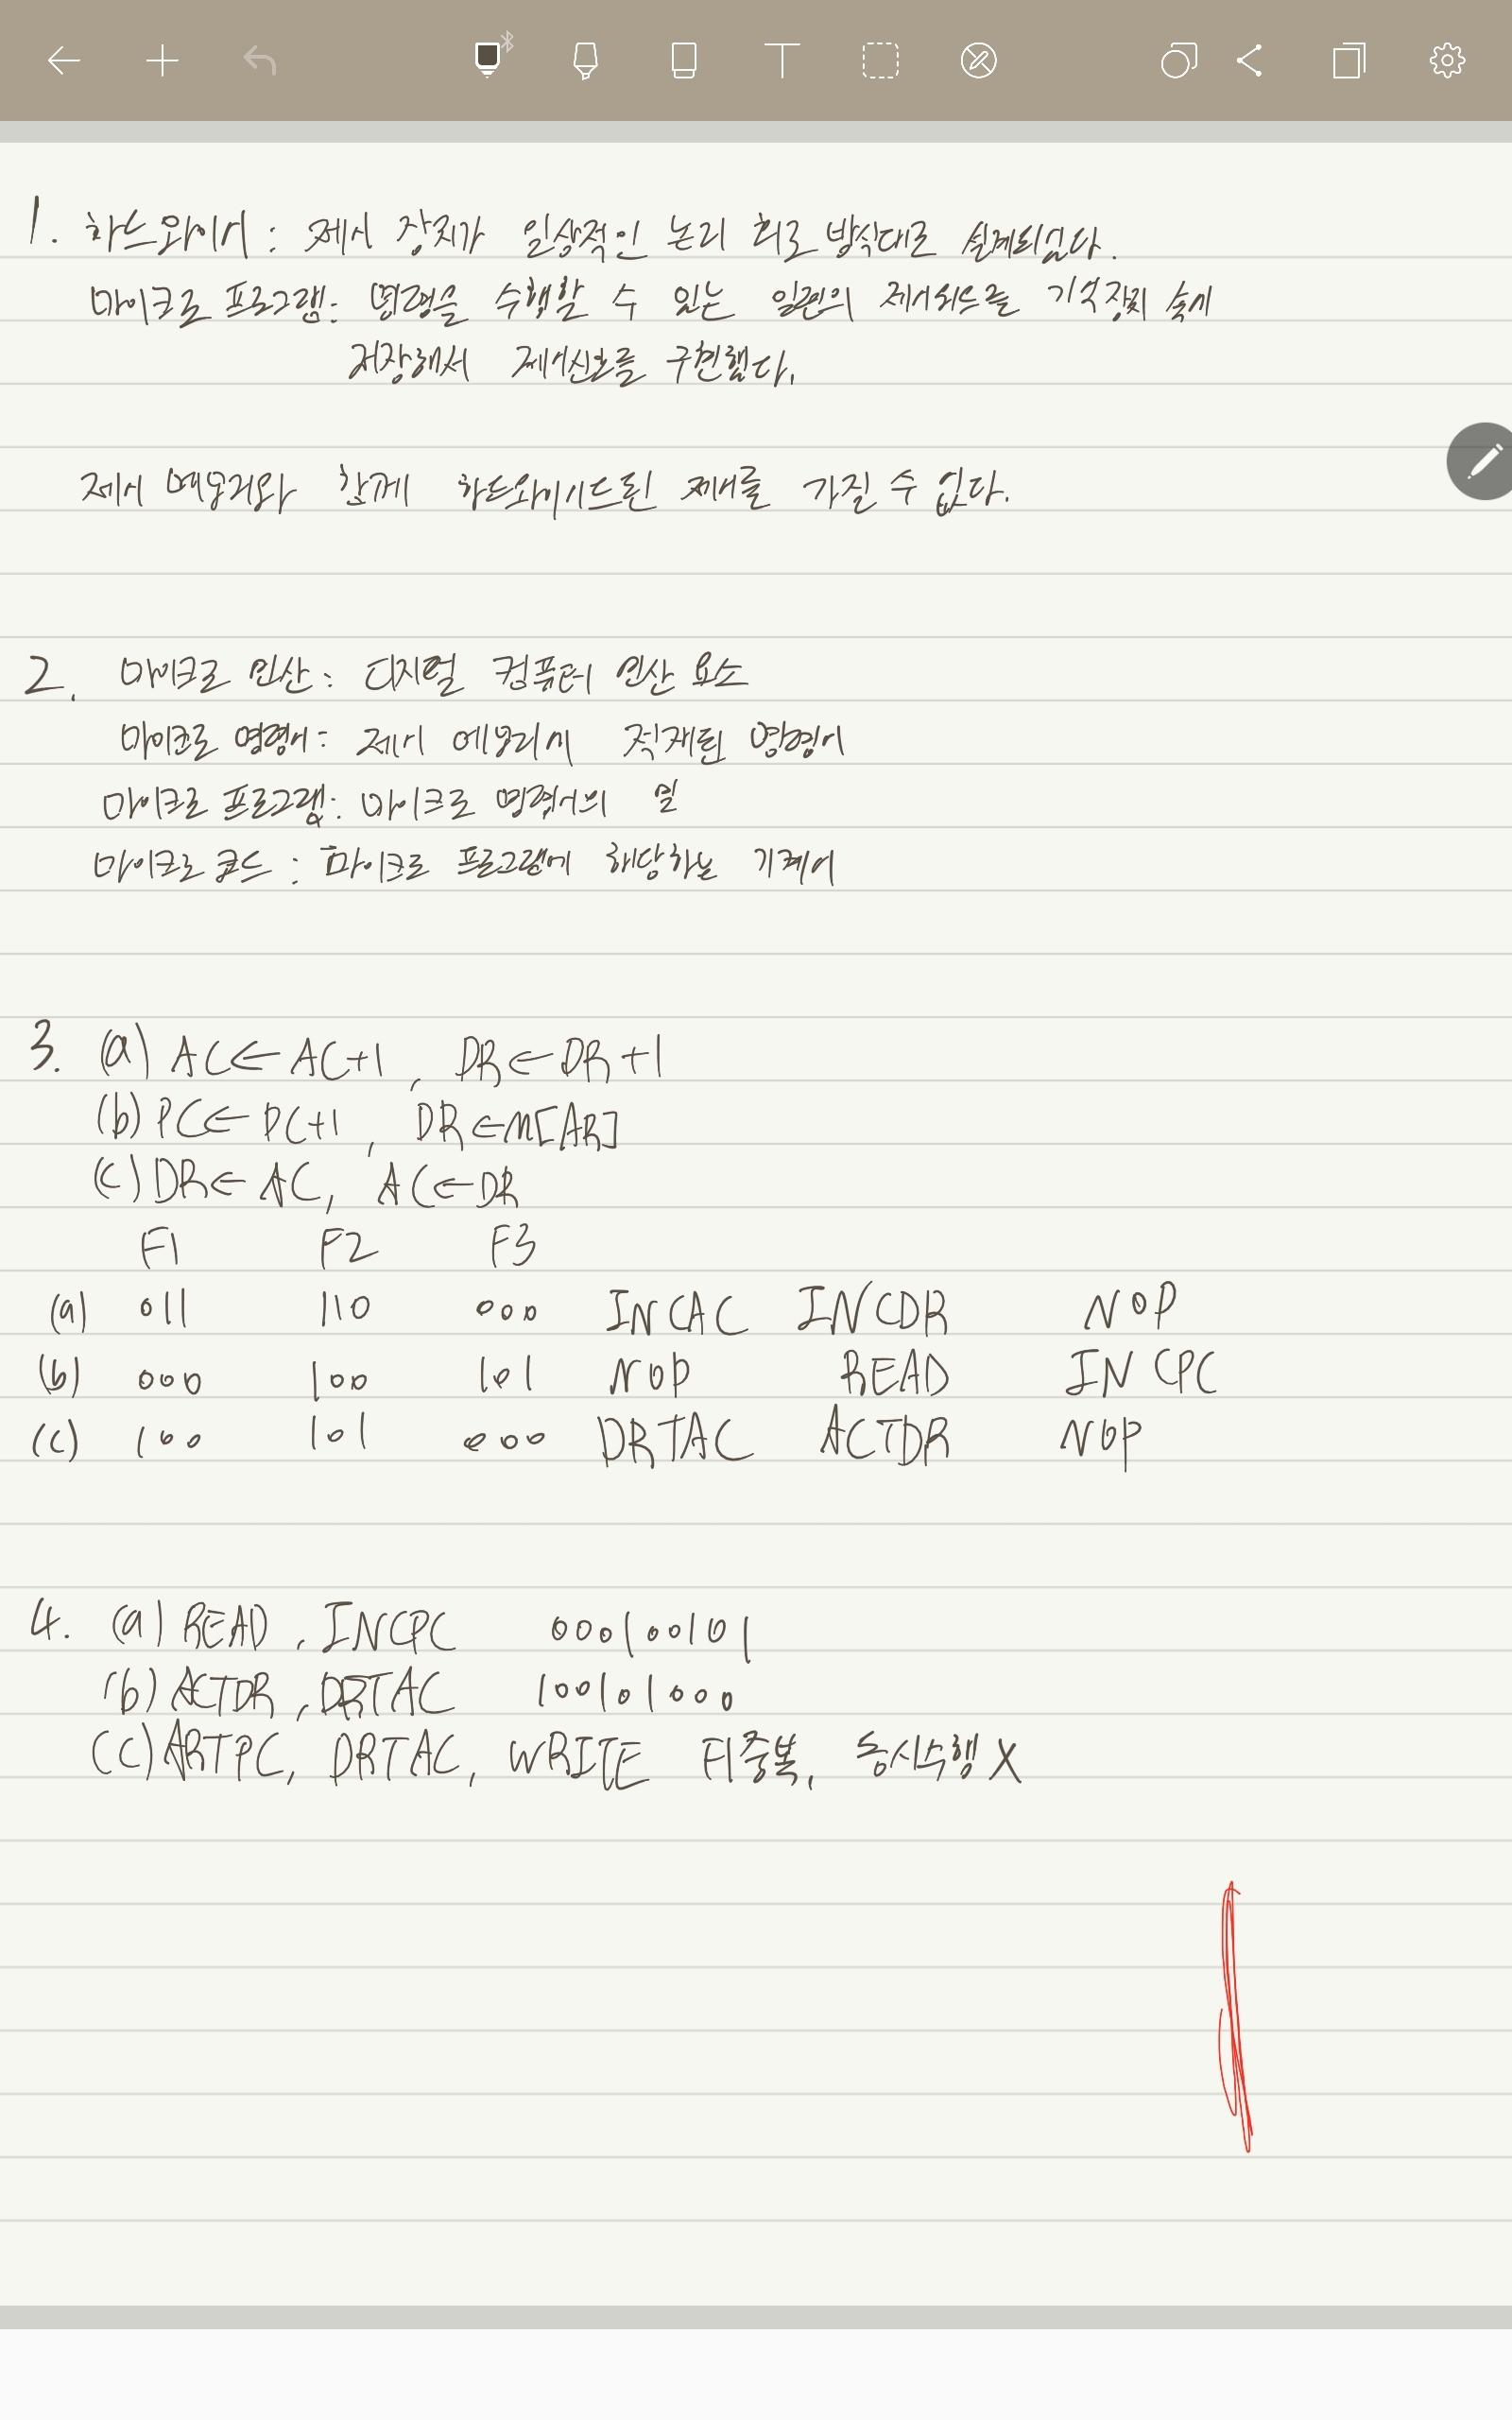 1. 하드와이어 : 제어 장치가 일상적인 논리 회로 방식대로 설계되었다.
마이크로 프로그램: 명령을 수행할 수 있는 일련의 제어워드를 기억장치 속에
저장해서 제어신호를 구현했다.
제어 메모리와 함께 하드와이어드된 제어를 가질 수 없다.
2. 마이크로 연산: 디지털 컴퓨터 연산 요소
마이크로 명령어: 제어 메모리에 적재된 명령어
마이크로 프로그램: 마이크로 명령어의 열
마이크로 코드 : 마이크로 프로그램에 해당하는 기계어
3. (a) AC←AC+1, DR←DR+1
(b) PC←PC+1, DR←M[AR]
(c) DR←AC, AC←DR
F1 F2 F3
(a) 011 110 000 INCAC INCDR NOP
(b) 000 100 101 NOP READ INCPC
(c) 100 101 000 DRTAC ACTDR NOP
4. (a) READ, INCPC 000100101
(b) ACTDR, DRTAC 100101000
(c) ARTPC, DRTAC, WRITE F1중복, 동시수행 X